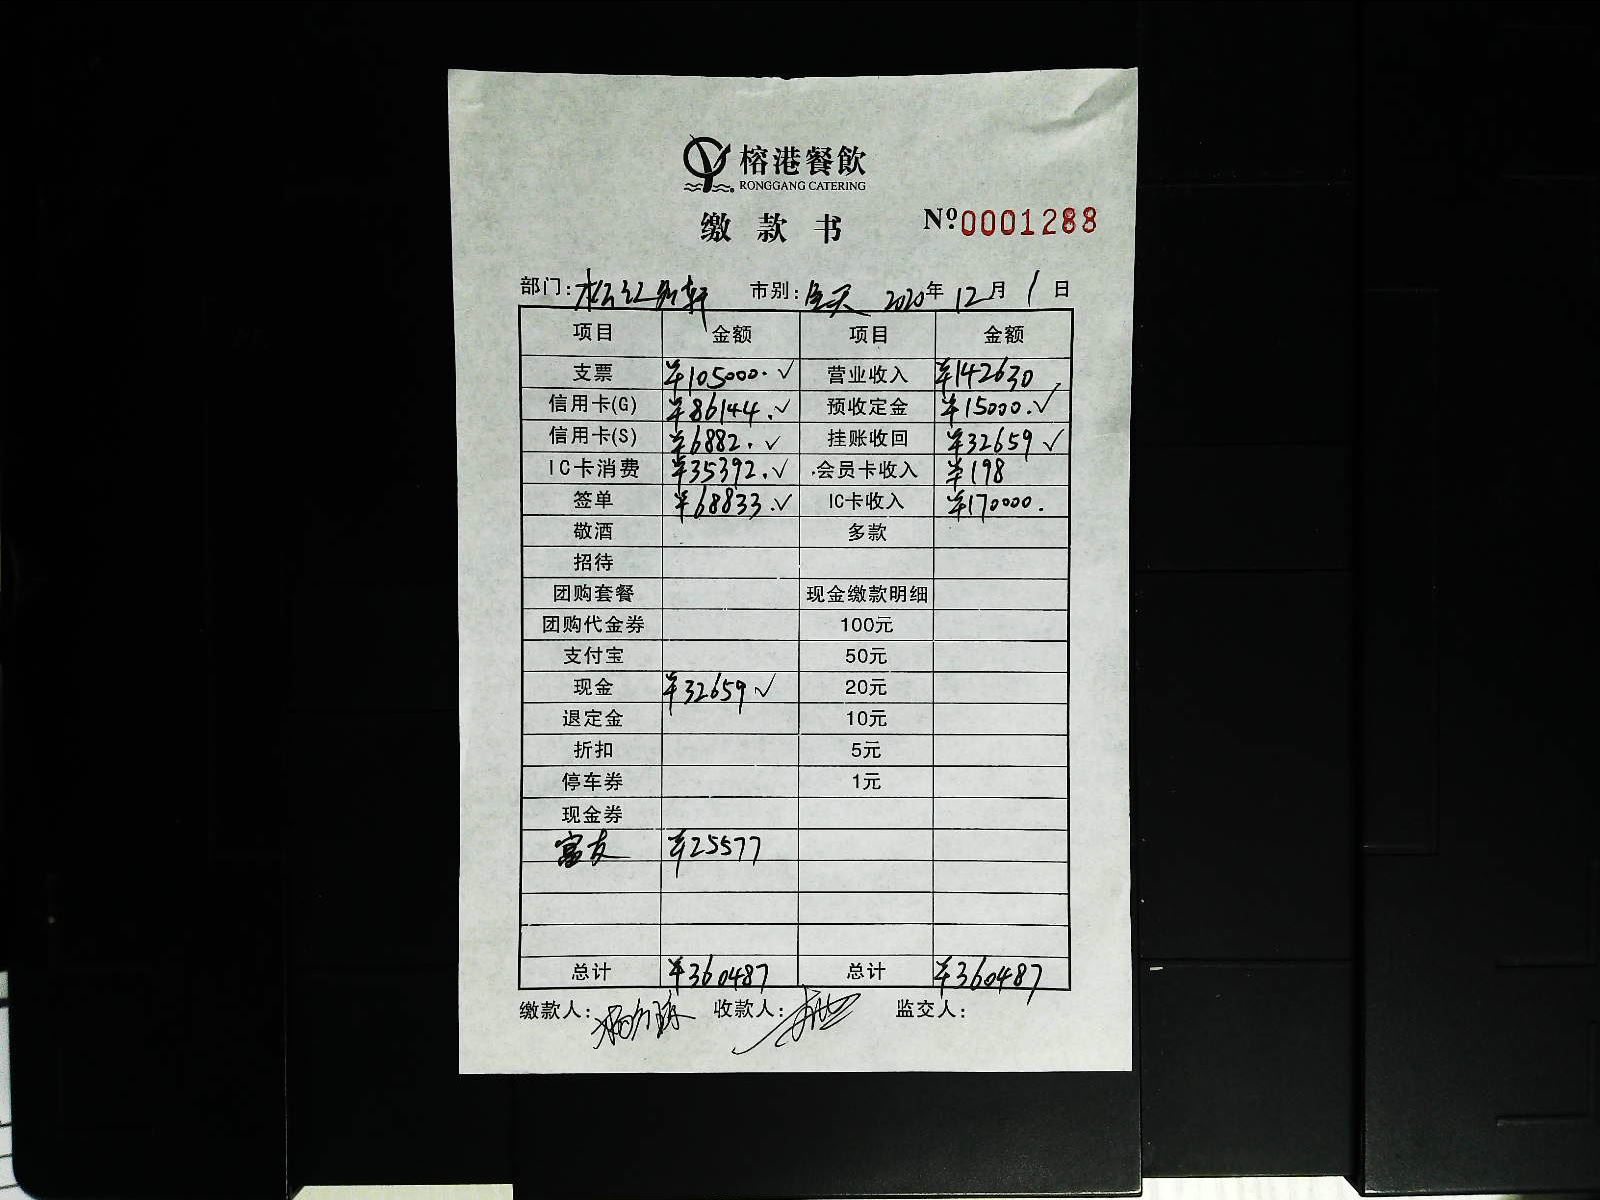 榕港餐飲
RONGGANG CATERING
缴款书 Nº:0001288
部门: 市别:全天 2020年12月1日
项目 金额 项目 金额
支票 ¥105000.✓ 营业收入 ¥142630
信用卡(G) ¥86144.✓ 预收定金 ¥15000.✓
信用卡(S) ¥6882.✓ 挂账收回 ¥32659✓
IC卡消费 ¥35392.✓ 会员卡收入 ¥198
签单 ¥68833.✓ IC卡收入 ¥170000.
敬酒 多款
招待
团购套餐 现金缴款明细
团购代金券 100元
支付宝 50元
现金 ¥32659✓ 20元
退定金 10元
折扣 5元
停车券 1元
现金券
富友 ¥25577
总计 ¥360487 总计 ¥360487
缴款人: 收款人: 监交人: